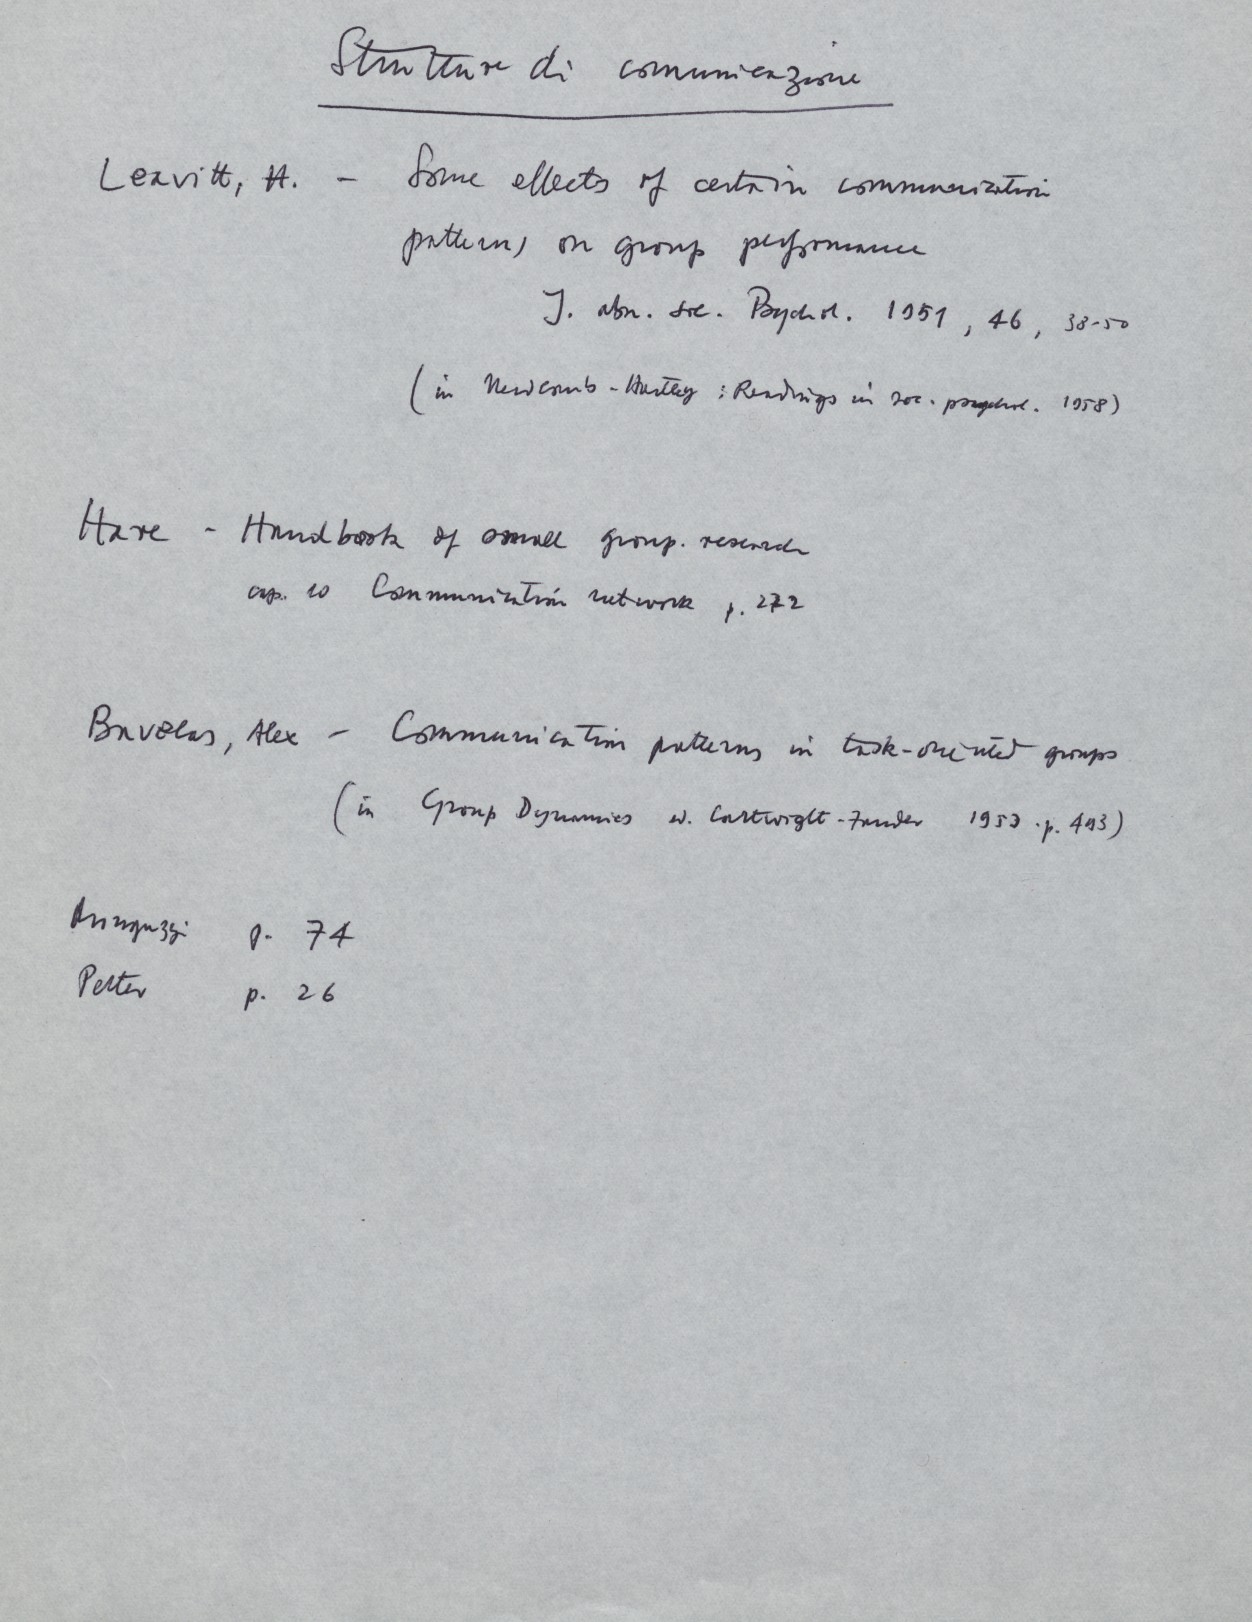 Strutture di comunicazione
Leavitt, H. - Some effects of certain communication
patterns on group performance
J. abn. soc. Psychol. 1951, 46, 38-50
(in Newcomb-Hartley: Readings in soc. psychol. 1958)
Hare - Handbook of small group research
cap. 10 Communication network p. 272
Bavelas, Alex - Communication patterns in task-oriented groups
(in Group Dynamics Cartwright-Zander 1953 p. 493)
p. 74
p. 26